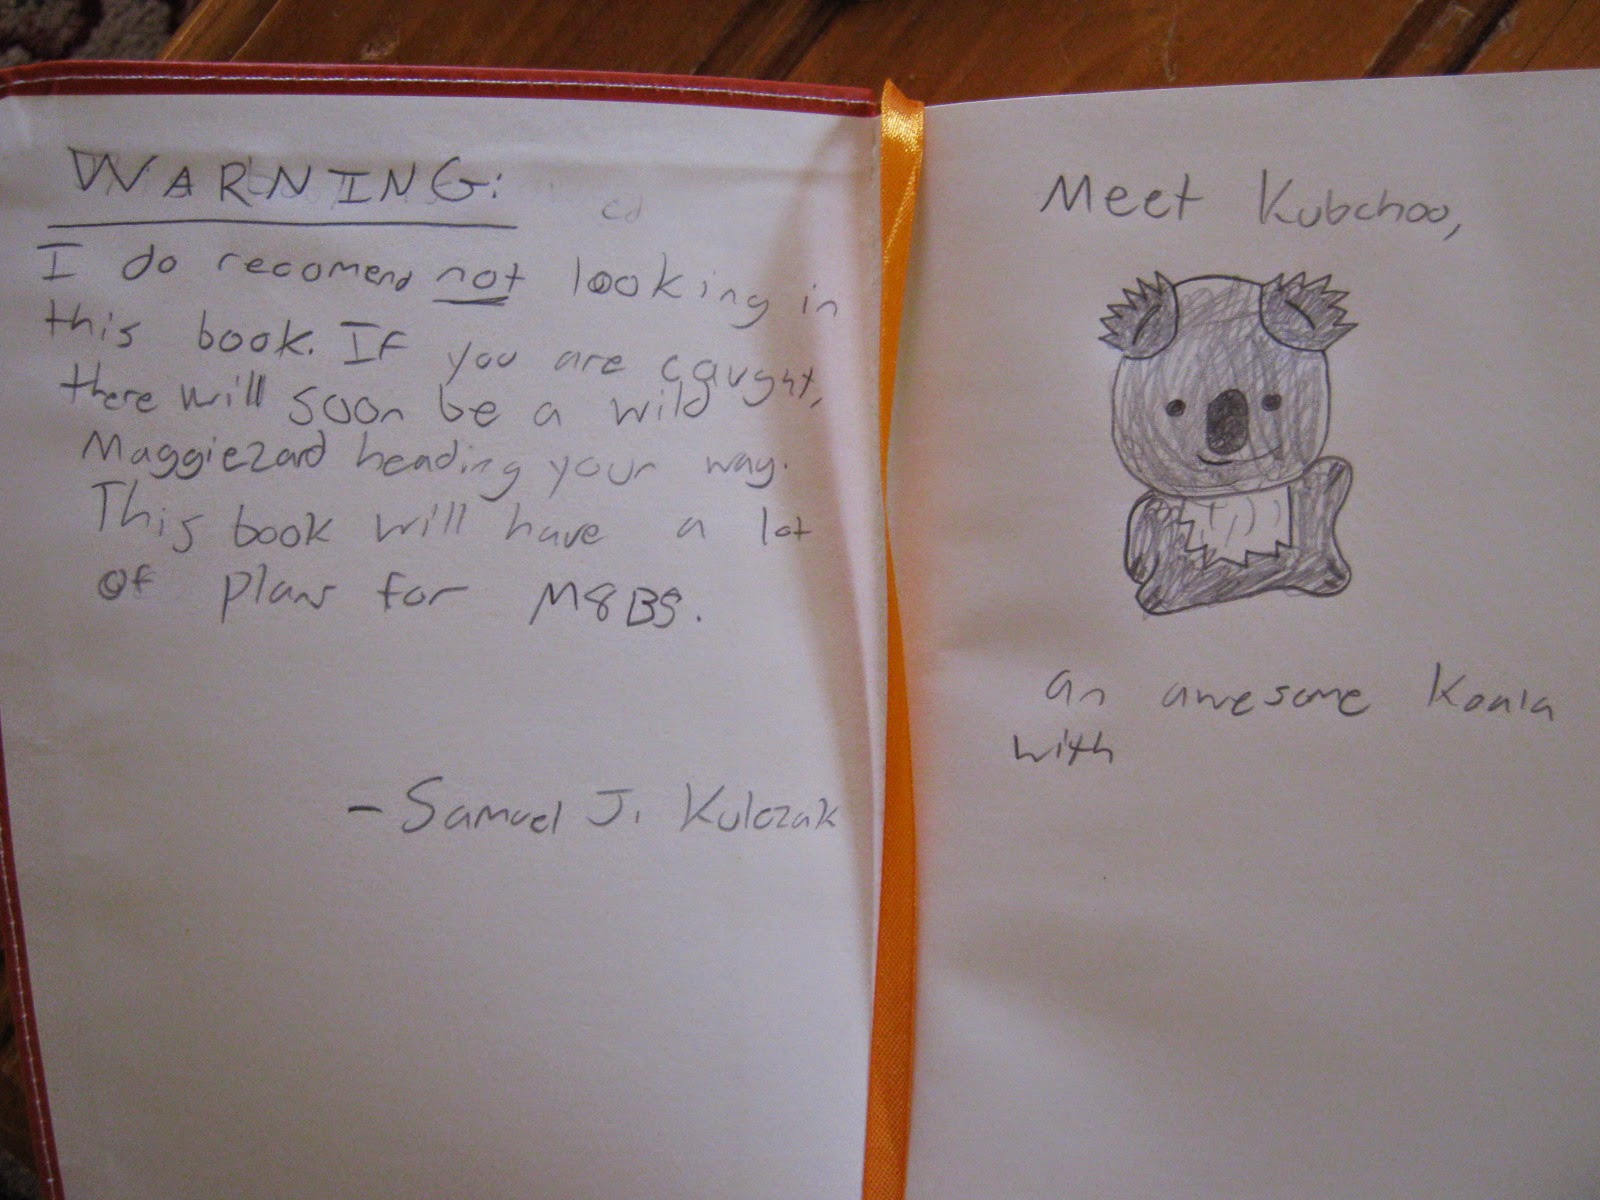 WARNING:
I do recomend not looking in
this book. If you are caught,
there will soon be a wild
Maggiezard heading your way.
This book will have a lot
of plans for M8BS.
- Samuel J. Kulczak
Meet Kubchoo,
an awesome Koala
with